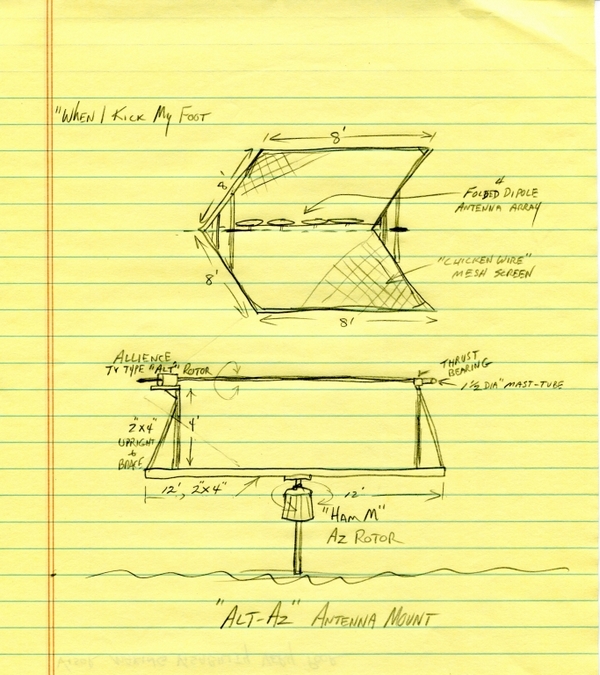 "WHEN I KICK MY FOOT
8'
8'
4
FOLDED DIPOLE
ANTENNA ARRAY
"CHICKEN WIRE"
MESH SCREEN
8'
8'
ALLIENCE
TV TYPE "ALT" ROTOR
THRUST
BEARING
1½ DIA" MAST-TUBE
2"X4"
UPRIGHT
&
BRACE
4'
12', 2"X4"
12'
"HAM M"
AZ ROTOR
"ALT-AZ" ANTENNA MOUNT